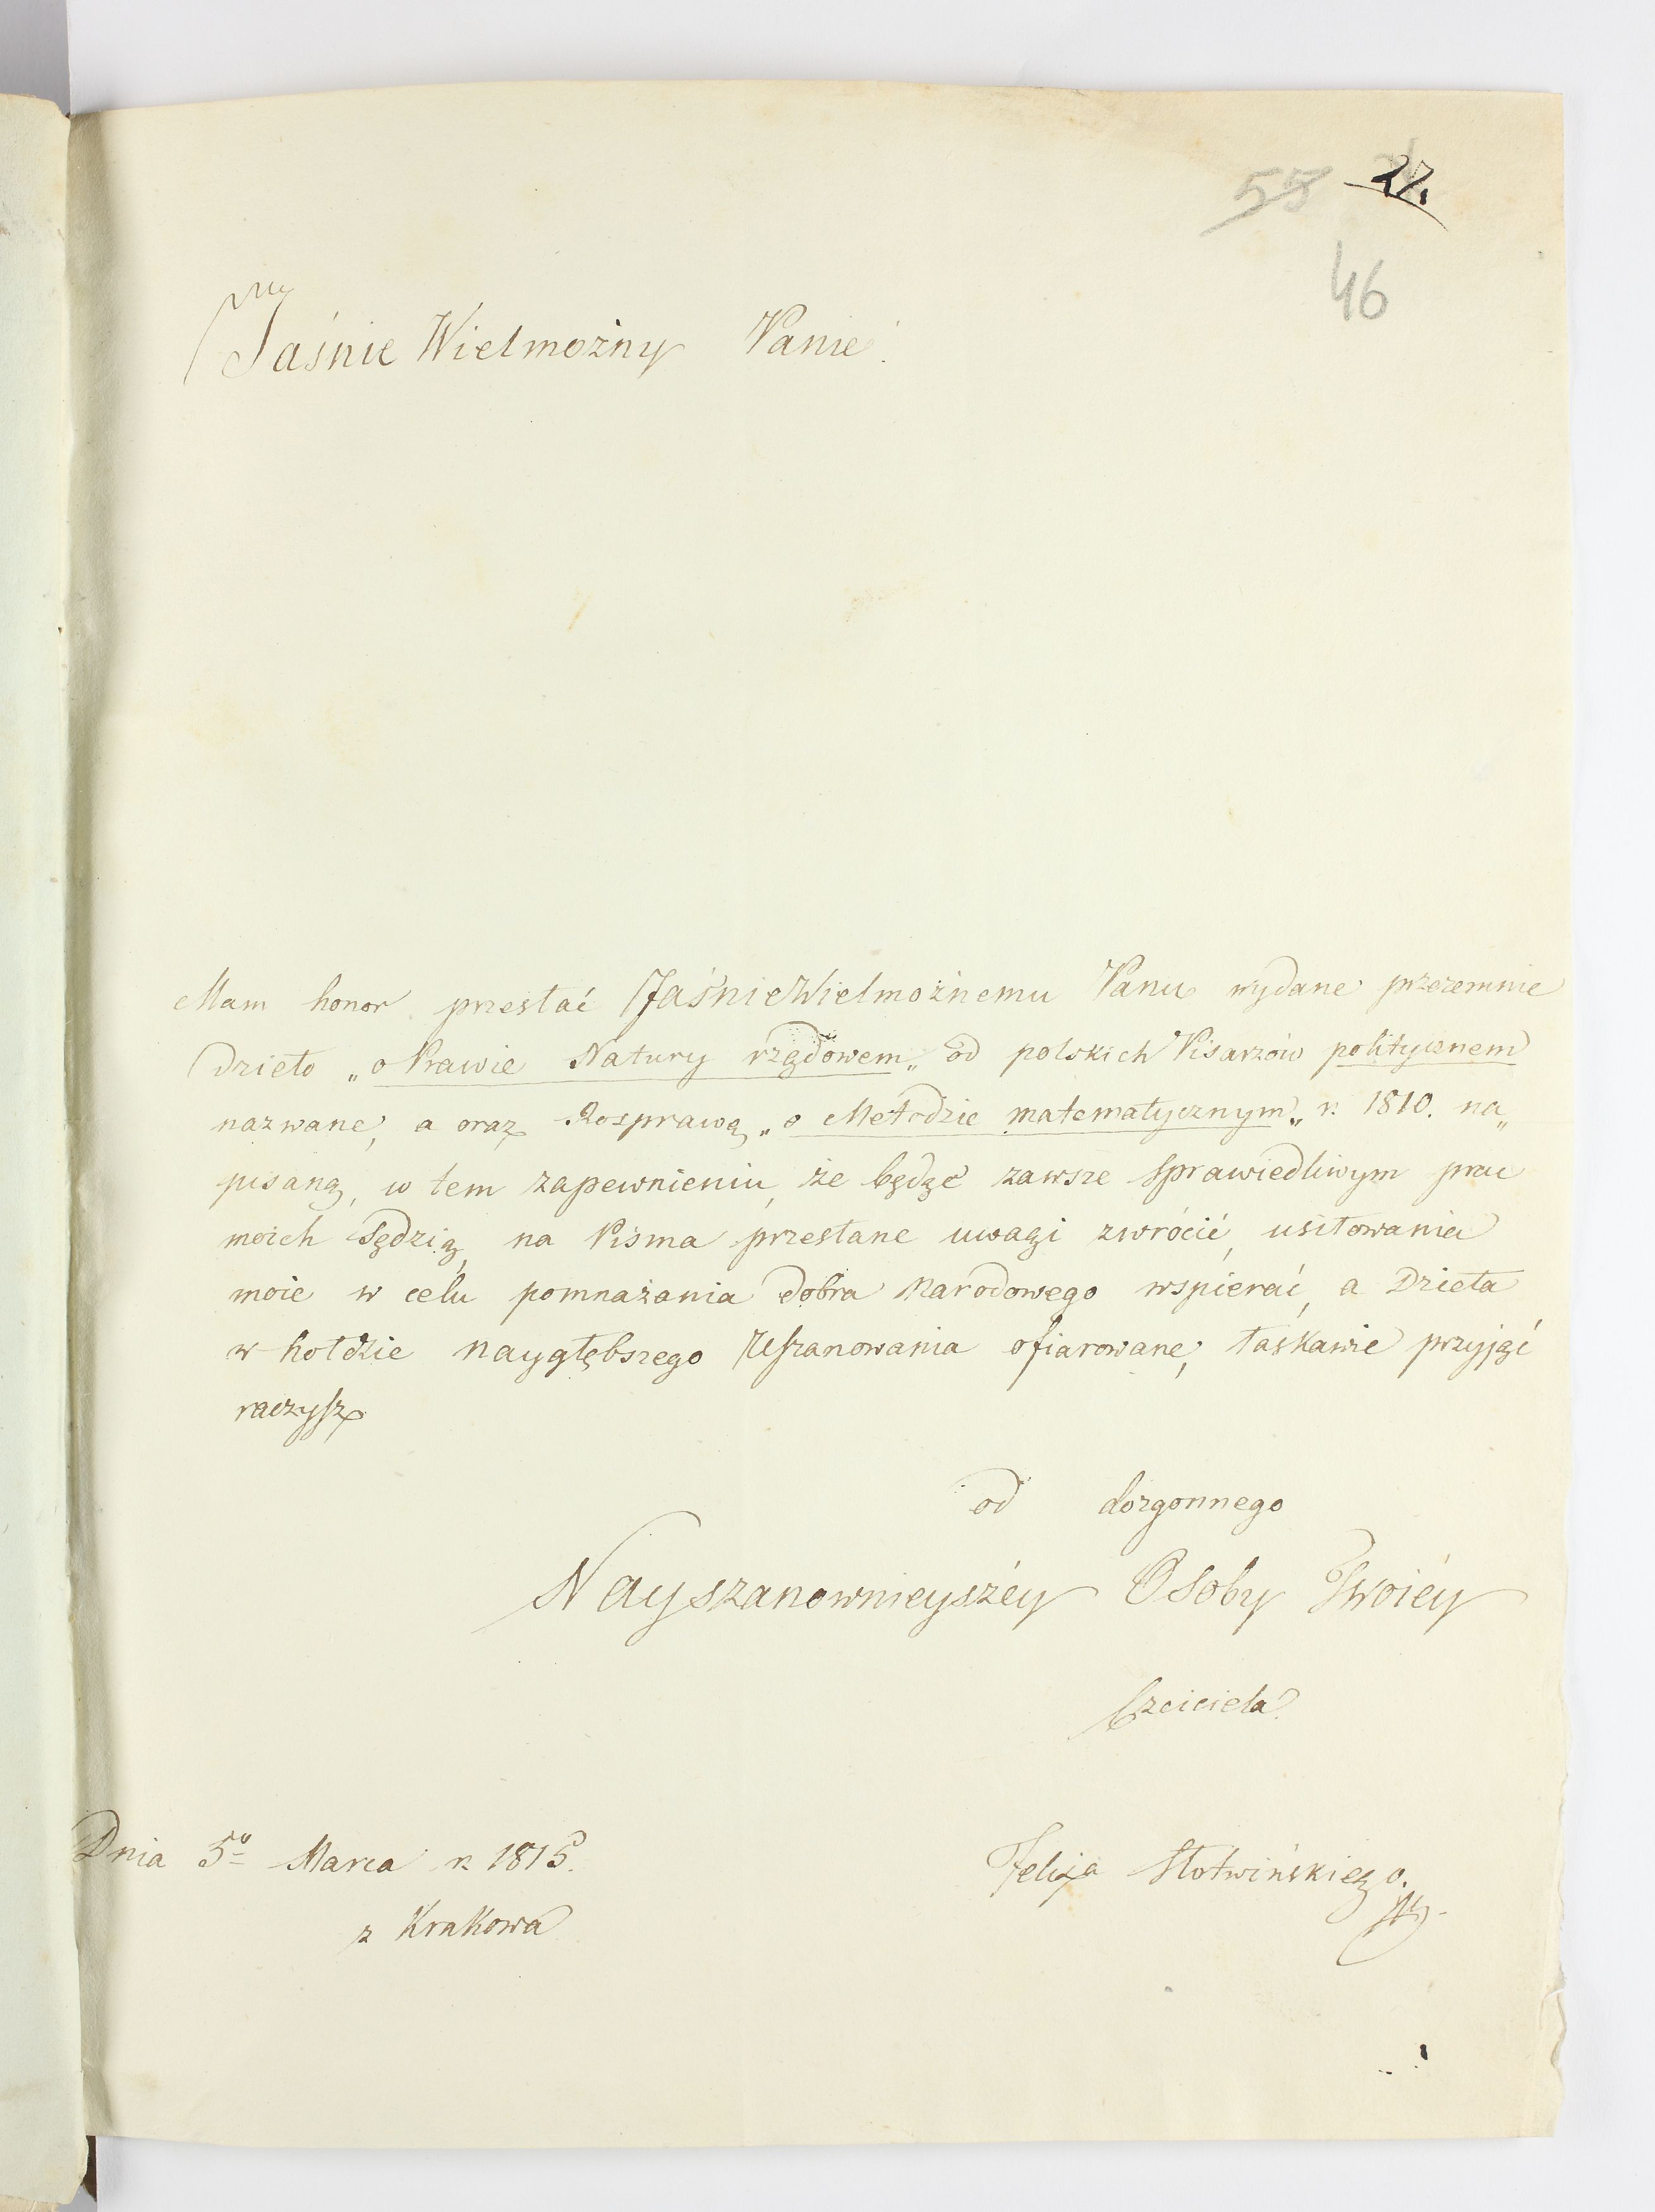 55 27.
46
Jaśnie Wielmożny Panie.
Mam honor przesłać JaśnieWielmożnemu Panu wydane przezemnie
Dzieło „o Prawie Natury rządowem„ od polskich Pisarzów politycznem
nazwane, a oraz Rosprawę „o Metodzie matematycznym„ r. 1810. na„
pisaną, w tem zapewnieniu, że będąc zawsze sprawiedliwym prac
moich Sędzią, na Pisma przesłane uwagi zwrócić, usiłowania
moie w celu pomnażania dobra Narodowego wspierać, a Dzieła
w hołdzie naygłębszego Uszanowania ofiarowane, łaskawie przyjąć
raczysz
od dozgonnego
Nayszanownieyszéy Osoby Twoiéy
Czciciela.
Dnia 5º Marca r. 1815.
z Krakowa
Felixa Słotwińskiego.